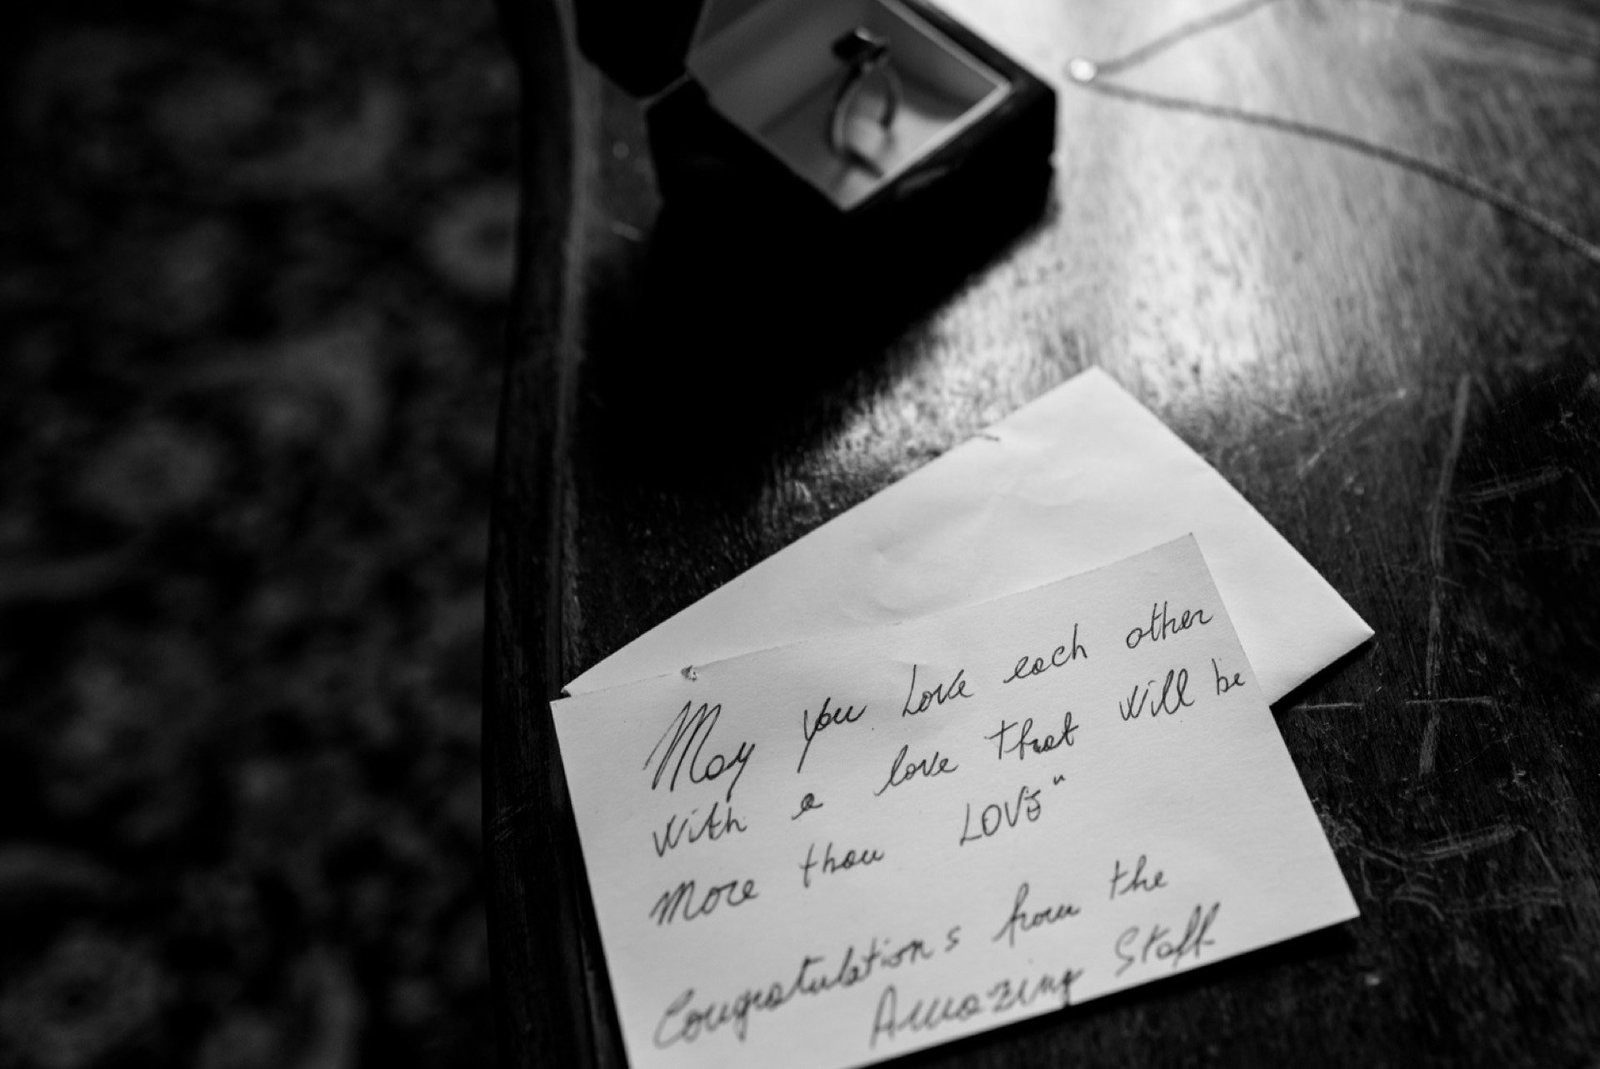 May you Love each other
With a love that will be
more than LOVE"
Congratulations from the
Amazing Staff